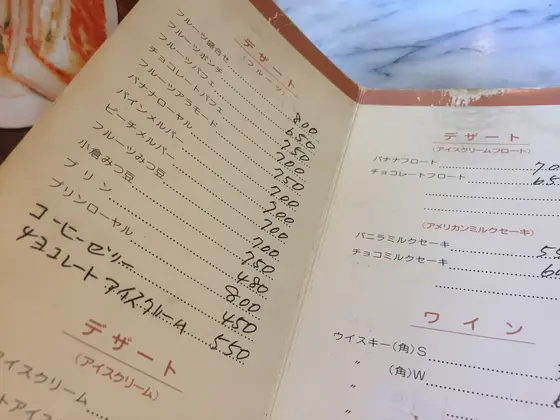 デザート
(フルーツ)
フルーツ盛合せ 800
フルーツポンチ 650
フルーツパフェ 750
チョコレートパフェ 700
フルーツアラモード 750
バナナローヤル 700
パインメルバー 700
ピーチメルバー 700
フルーツみつ豆 700
小倉みつ豆 750
プリン 480
プリンローヤル 800
コーヒーゼリー 450
チョコレートアイスクリーム 550
デザート
(アイスクリーム)
アイスクリーム
デザート
(アイスクリームフロート)
バナナフロート
チョコレートフロート
(アメリカンミルクセーキ)
バニラミルクセーキ
チョコミルクセーキ
ワイン
ウイスキー(角)S
〃 (角)W
〃